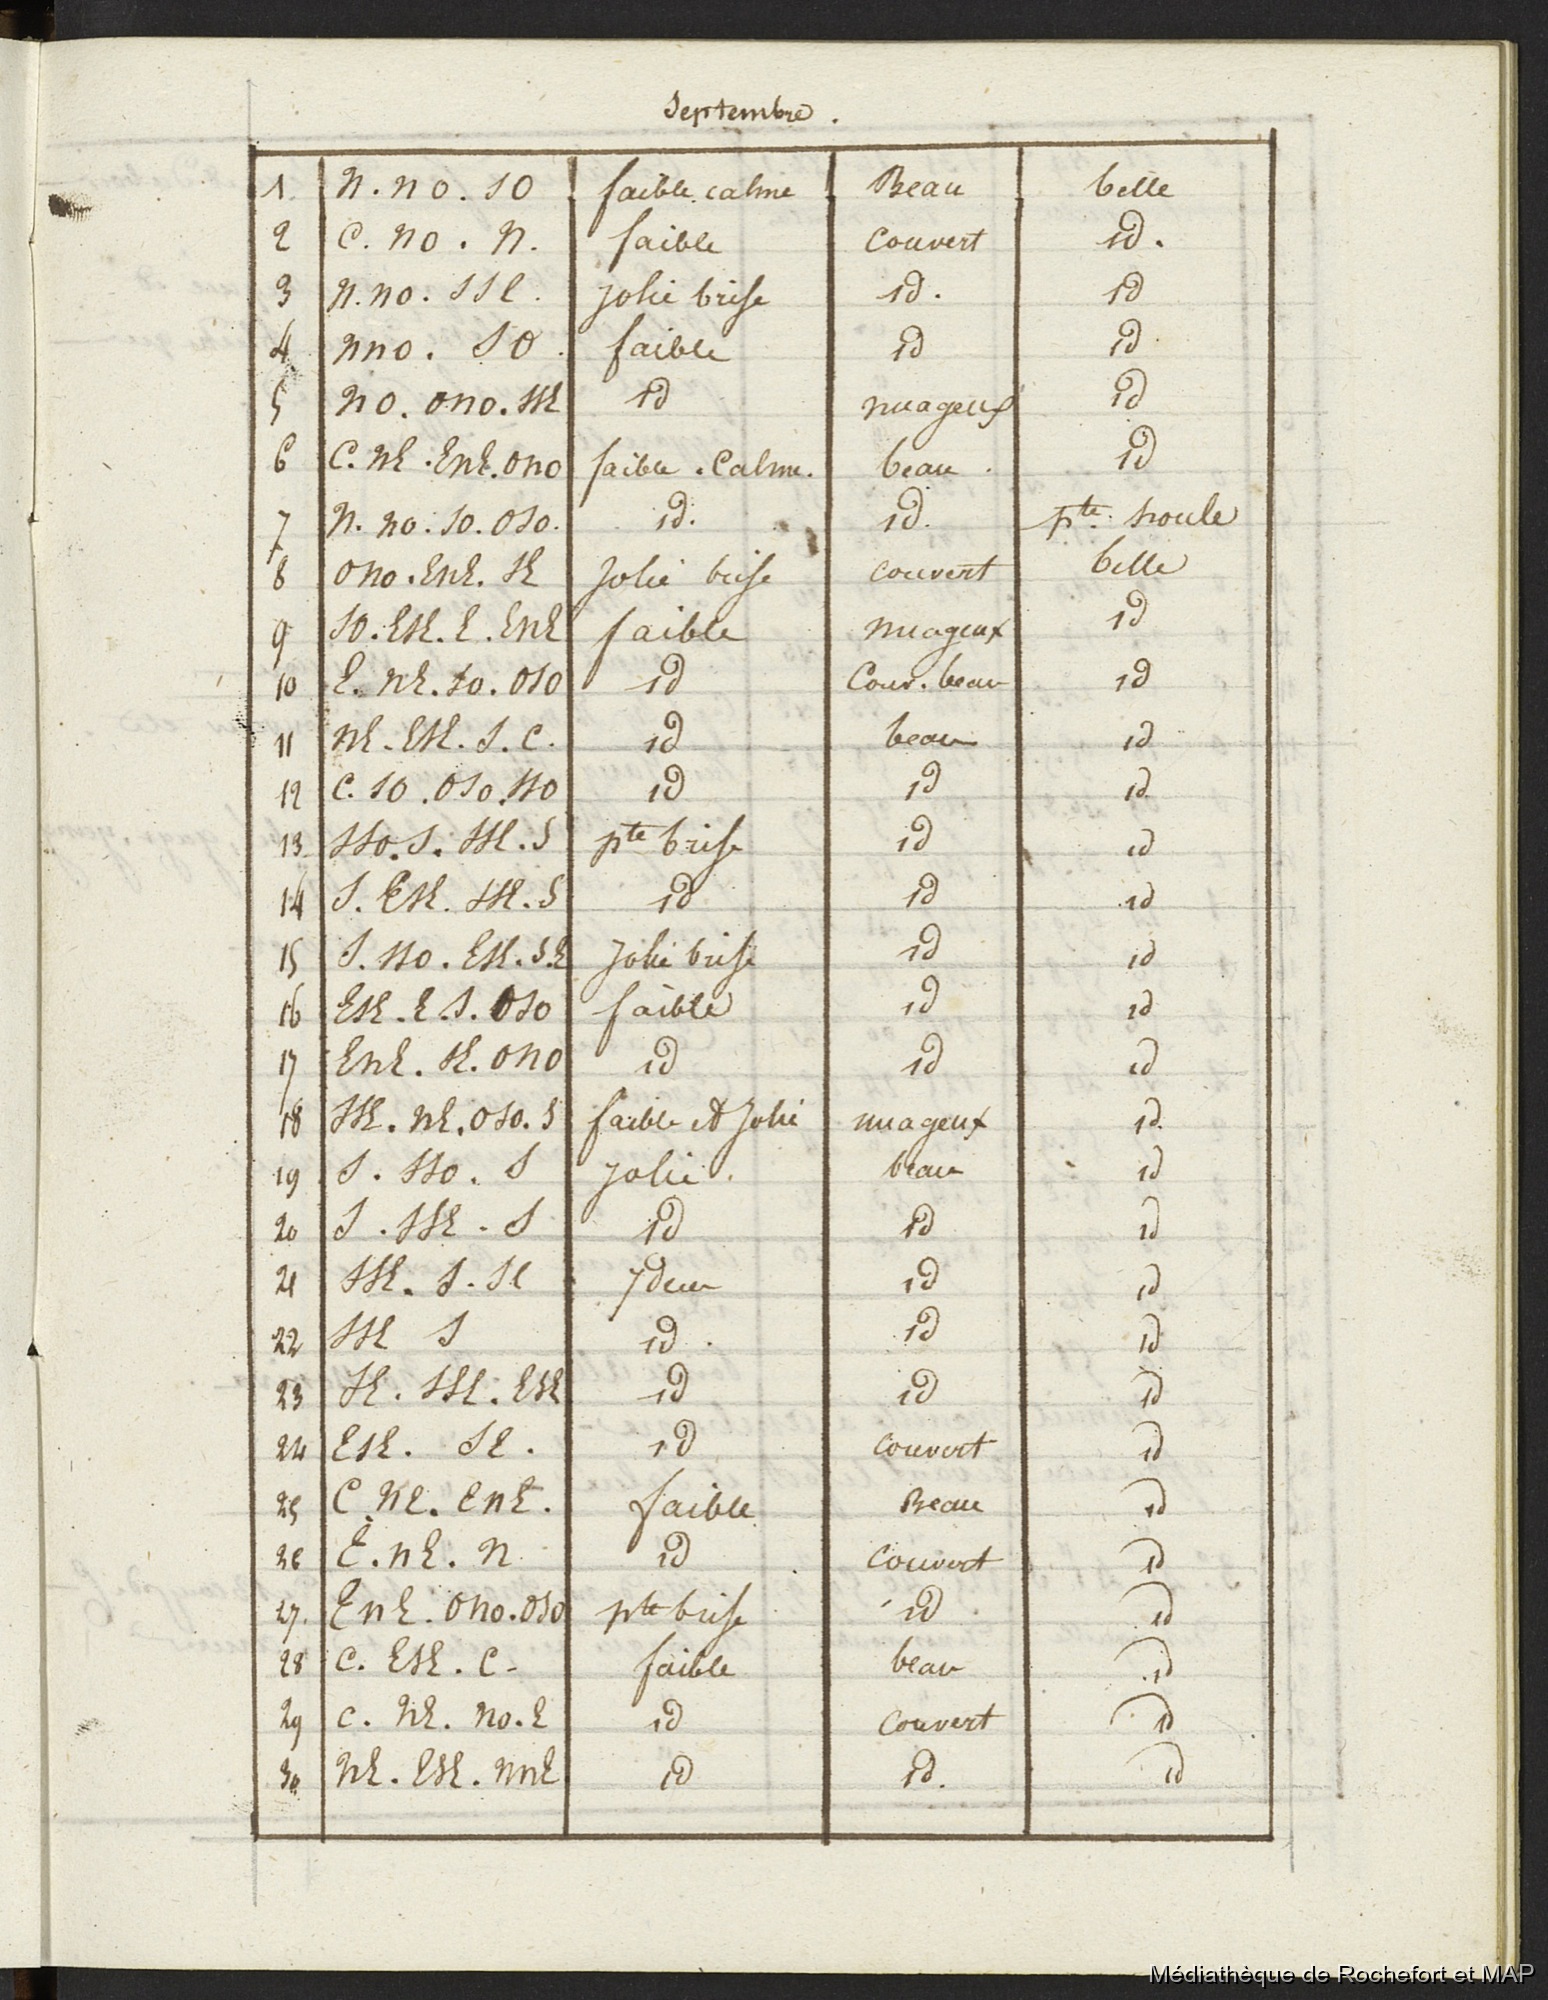 Septembre.
1 N. no. SO faible. calme Beau belle
2 C. NO. N. faible couvert id.
3 N. no. SSE. Jolie brise id. id
4 nno. SO. faible id id
5 NO. ONO. SSE id nuageux id
6 C. NE. ENE. ONO faible. Calme. beau id
7 N. no. SO. OSO. id. id. pte. houle
8 ONO. ENE. SE Jolie brise couvert belle
9 SO. ESE. E. ENE faible nuageux id
10 E. NE. SO. OSO id Couv. beau id
11 NE. ESE. S. C. id beau id
12 C. SO. OSO. SSO id id id
13 SSO. S. SSE. S pte brise id id
14 S. ESE. SSE. S id id id
15 S. SSO. ESE. S.E Jolie brise id id
16 ESE. E. S. OSO faible id id
17 ENE. SE. ONO id id id
18 SSE. NE. OSO. S faible et Jolie nuageux id.
19 S. SSO. S Jolie. beau id
20 S. SSE. S id id id
21 SSE. S. SE Idem id id
22 SSE S id. id id
23 SE. SSE. ESE id id id
24 ESE. SE. id couvert id
25 C. NE. ENE. faible Beau id
26 E. NE. N id couvert id
27. ENE. ONO. OSO pte brise id id
28 C. ESE. C- faible beau id
29 C. NE. NO. E id couvert id
30 NE. ESE. NNE id id. id
Médiathèque de Rochefort et MAP